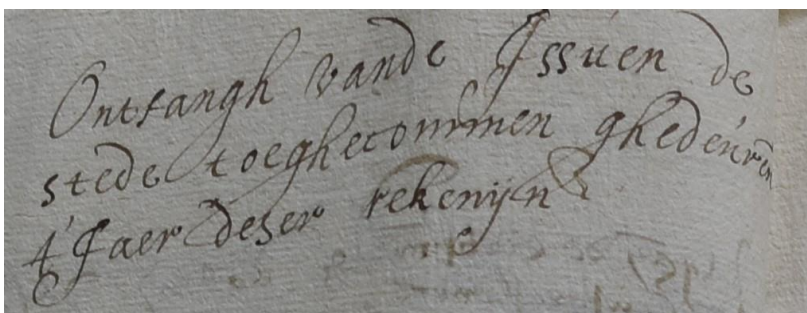 Ontfangh vande Issuen de
stede toeghecommen ghedeuren
t'Jaer deser rekenijn